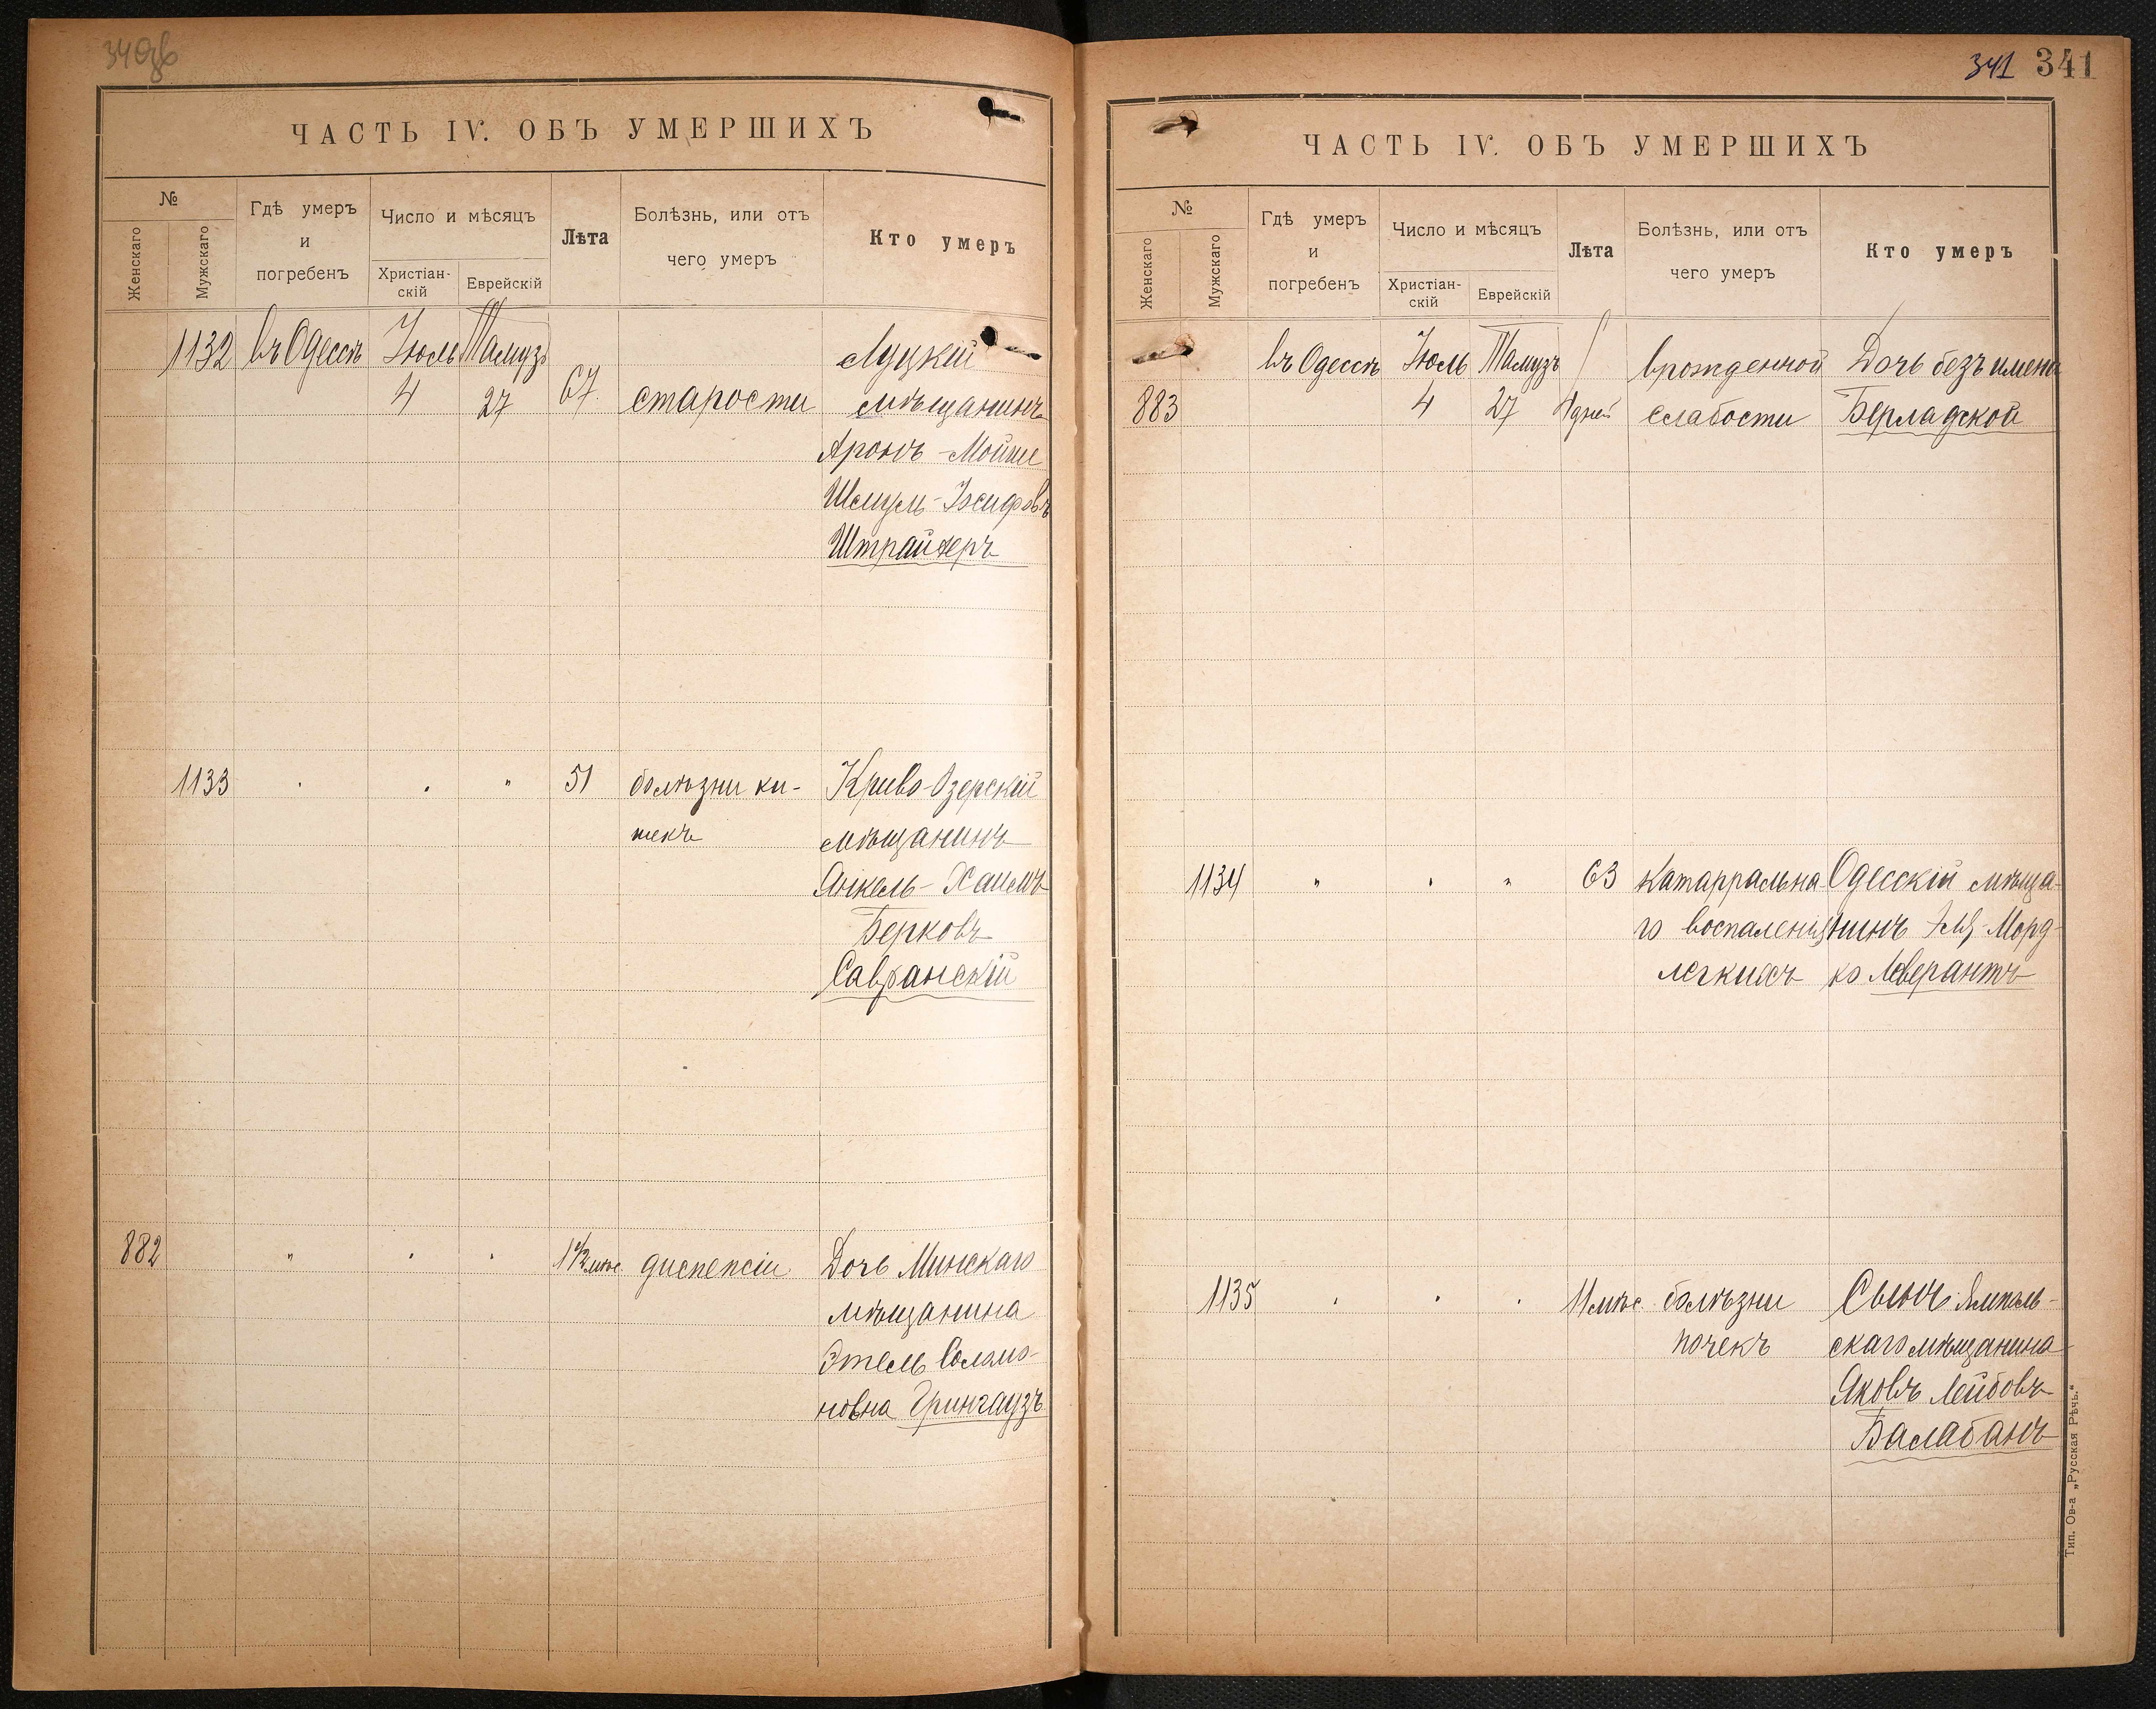 340об
ЧАСТЬ IV. ОБЪ УМЕРШИХЪ
№
Женскаго
Мужскаго
Гдѣ умеръ
и
погребенъ
Число и мѣсяцъ
Христіан-
скій
Еврейскій
Лѣта
Болѣзнь, или отъ
чего умеръ
Кто умеръ
1132 въ Одессѣ Іюль Тамузъ Луцкій
4 27 67 старости мѣщанинъ
Аронъ-Мойше
Шмуль-Іосифовъ
Штрайхеръ
1133 " " " 51 болѣзни ки- Криво-Озерскій
шекъ мѣщанинъ
Янкель-Хаимъ
Берковъ
Савранскій
882 " " " 1½ мѣс диспепсіи Дочь Минскаго
мѣщанина
Этель Соломо-
новна Грингаузъ
341 341
ЧАСТЬ IV. ОБЪ УМЕРШИХЪ
№
Женскаго
Мужскаго
Гдѣ умеръ
и
погребенъ
Число и мѣсяцъ
Христіан-
скій
Еврейскій
Лѣта
Болѣзнь, или отъ
чего умеръ
Кто умеръ
въ Одессѣ Іюль Тамузъ врожденной Дочь безъ имени
883 4 27 дней слабости Берладской
1134 " " " 63 катарральна- Одесскій мѣща-
го воспаленія нинъ Морд-
легкихъ ко Леверантъ
1135 " " " 11 мѣс. болѣзни Сынъ Ямполь-
почекъ скаго мѣщанина
Яковъ Лейбовъ
Балабанъ
Тип. Ов-а „Русская Рѣчь."